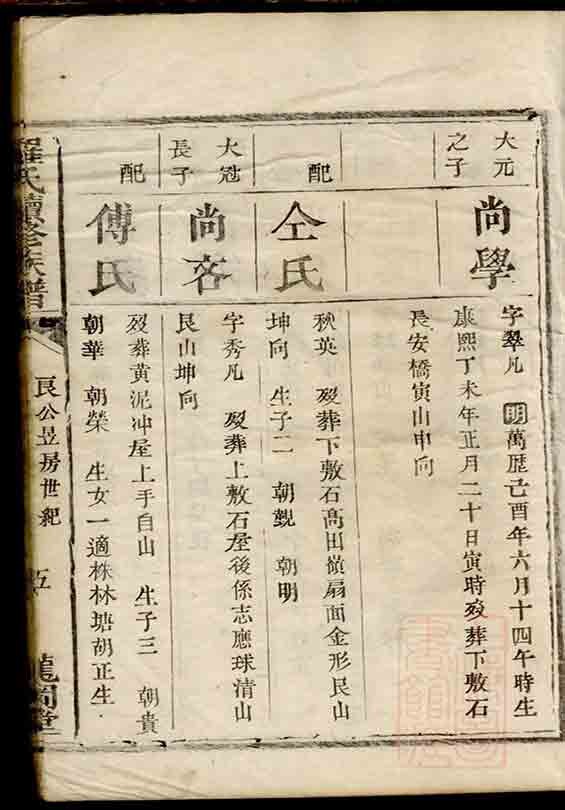 大元
之子
尚學
字翠凡 明萬歷己酉年六月十四午時生
康熙丁未年正月二十日寅時殁葬下敷石
長安橋寅山申向
配
仝氏
秋英 殁葬下敷石高田嶺扇面金形艮山
坤向 生子二 朝覲 朝明
大冠
長子
尚客
字秀凡 殁葬上敷石屋後係志應球清山
艮山坤向
配
傅氏
殁葬黃泥冲屋上手自山 生子三 朝貴
朝華 朝榮 生女一適株林塘胡正生
羅氏續修族譜
良公昱房世紀
五